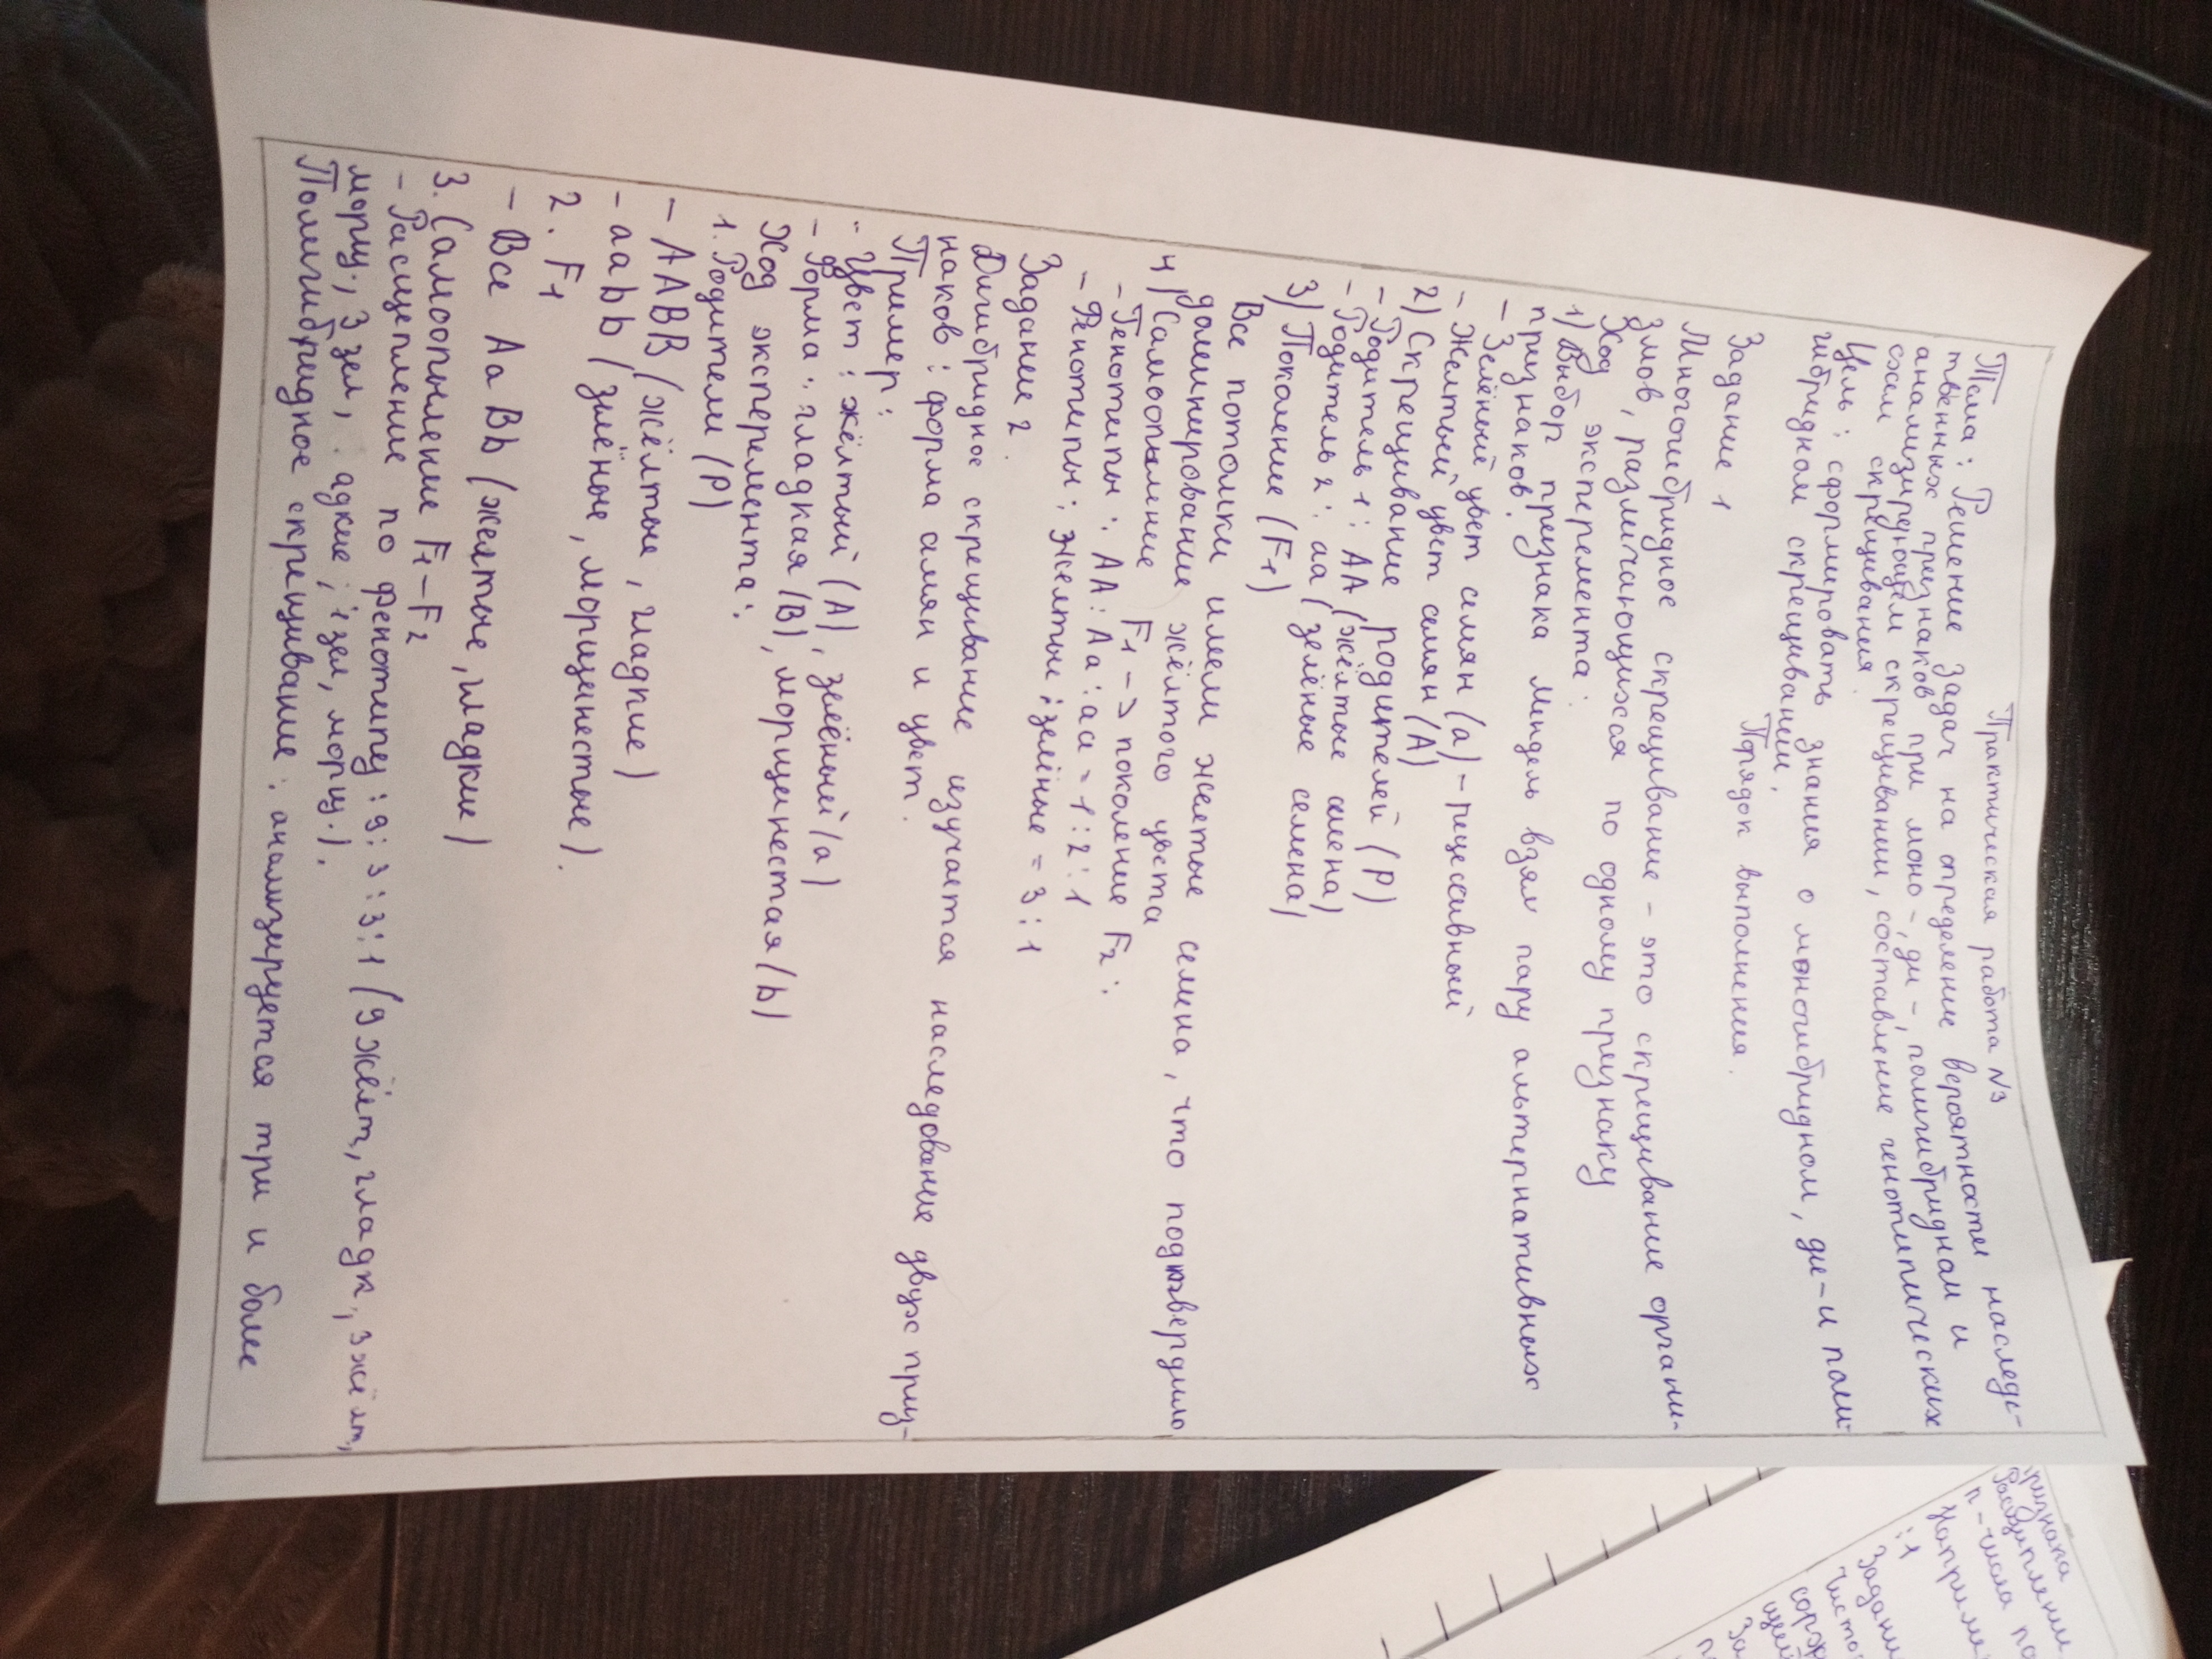 Практическая работа №3
Тема: Решение задач на определение вероятности наследс-
твенных признаков при моно-, ди-, полигибридном и
анализирующем скрещивании, составление генотипических
схем скрещивания.
Цель: сформировать знания о моногибридном, ди- и поли-
гибридном скрещивании.
Порядок выполнения.
Задание 1
Многогибридное скрещивание - это скрещивание органи-
змов, различающихся по одному признаку
Ход эксперемента:
1) Выбор признака мендель взял пару альтернативных
признаков.
- Зелённый цвет семян (а) - рицесивный
- Желтый цвет семян (А)
2) Скрещивание родителей (Р)
- Родитель 1: АА (жёлтые семена)
- Родитель 2: аа (зелёные семена)
3) Поколение (F1)
Все потомки имели желтые семина, что подтвердило
доминирование жёлтого цвета
4) Самоопыление F1 -> поколение F2:
- Генотипы: АА: Аа: аа = 1:2:1
- Фенотипы: желтые; зелёные = 3:1
Задание 2.
Дигибридное скрещивание изучается наследование двух приз-
наков: форма симян и цвет.
Пример:
- Цвет: жёлтый (А), зелёный (а)
- Форма: гладкая (В), морщинестая (b)
Ход эксперемента:
1. Родители (Р)
- ААВВ (жёлтые, гладкие)
- ааbb (зелёные, морщинестые).
2. F1
- Все АаВb (желтые, гладкие)
3. Самоопыление F1 - F2
- Расщепление по фенотипу: 9:3:3:1 (9 жёлт, гладк, 3 жёлт,
морщ., 3 зел, адкие; 1 зел, морщ.).
Полигибридное скрещивание: анализируется три и более
ризнака
Расщиплени
n - числа па
Наприме
:1
Задани
чисто
сорж
щей
За